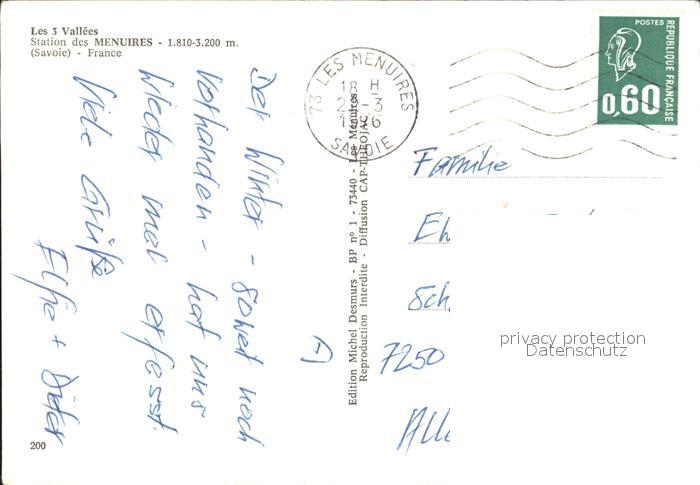 Les 3 Vallées
Station des MENUIRES - 1.810-3.200 m.
(Savoie) - France
Der Winter - soweit noch
vorhanden - hat uns
wieder mal erfasst.
Viele Grüße
Elfie + Dieter
200
Edition Michel Desmurs - BP n° 1 - 73440 - Les Menuires
Reproduction Interdite - Diffusion CAP-THEOJAC
73 LES MENUIRES
18 H
2 -3
SAVOIE
POSTES
REPUBLIQUE FRANÇAISE
0,60
Familie
Eh
Sch
7250
privacy protection
Datenschutz